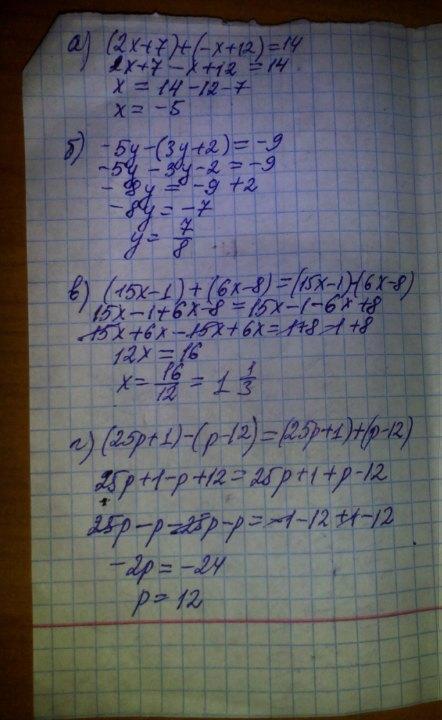 а) (2x+7)+(-x+12)=14
2x+7-x+12=14
x = 14-12-7
x = -5
б) -5y-(3y+2)=-9
-5y-3y-2=-9
-8y=-9+2
-8y=-7
y= 7/8
в) (15x-1)+(6x-8)=(15x-1)-(6x-8)
15x-1+6x-8=15x-1-6x+8
15x+6x-15x+6x=1+8-1+8
12x=16
x= 16/12 = 1 1/3
г) (25p+1)-(p-12)=(25p+1)+(p-12)
25p+1-p+12=25p+1+p-12
25p-p-25p-p=-1-12+1-12
-2p=-24
p=12